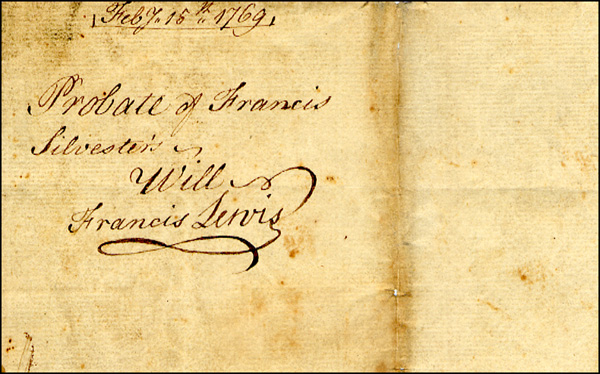 Feby. 15th. 1769
Probate of Francis
Silvester's
Will
Francis Lewis